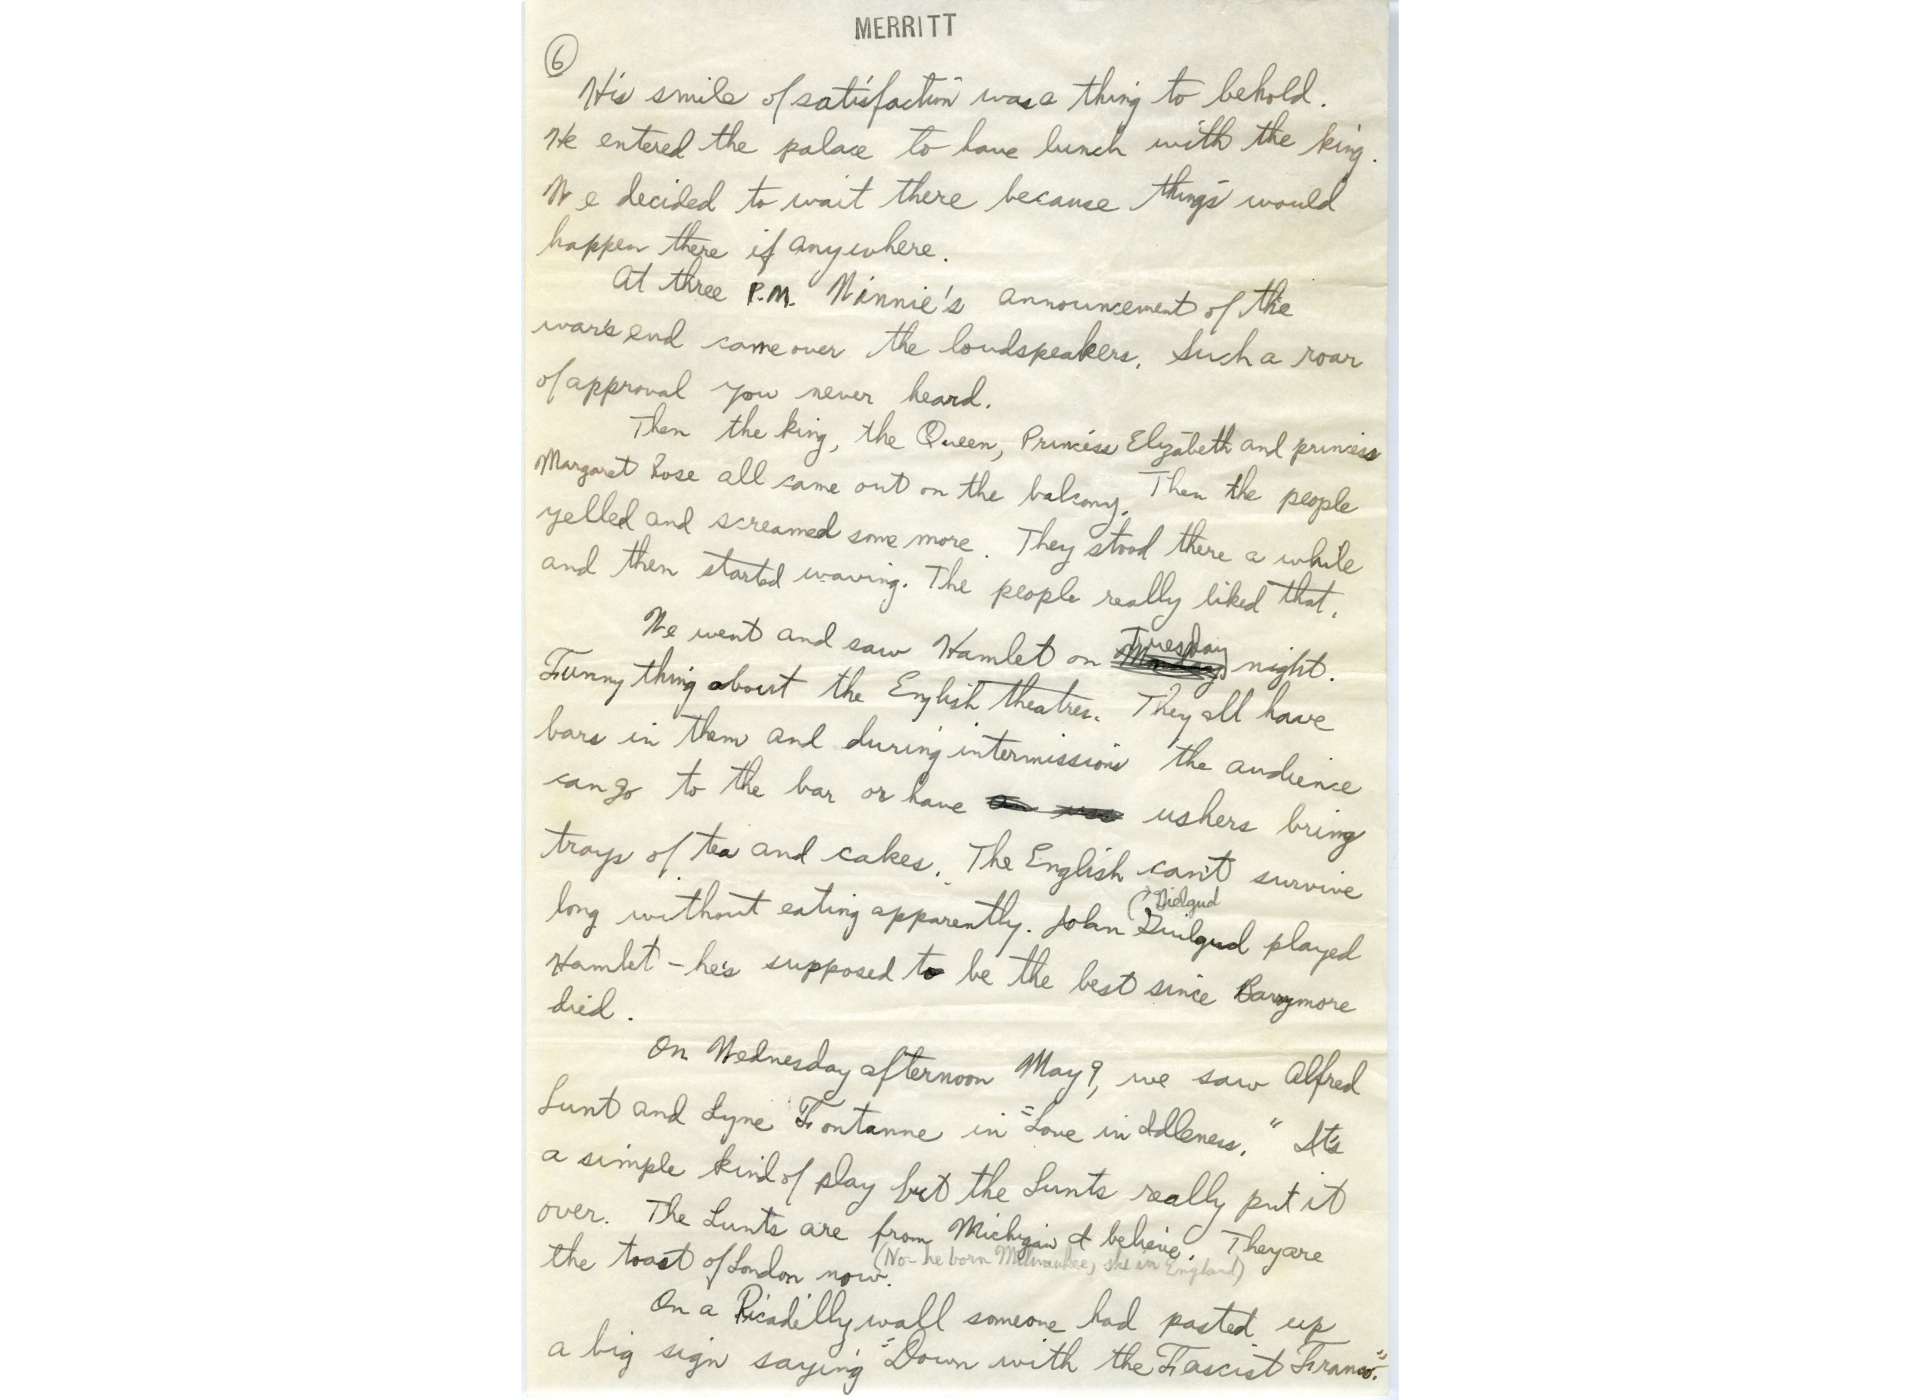 MERRITT
6
His smile of satisfaction was a thing to behold.
He entered the palace to have lunch with the king.
We decided to wait there because things would
happen there if anywhere.
At three P.M. Winnie's announcement of the
war's end came over the loudspeakers. Such a roar
of approval you never heard.
Then the king, the Queen, Princess Elizabeth and princess
Margaret Rose all came out on the balcony. Then the people
yelled and screamed some more. They stood there a while
and then started waving. The people really liked that.
We went and saw Hamlet on Monday Tuesday night.
Funny thing about the English theatres. They all have
bars in them and during intermissions the audience
can go to the bar or have ushers bring
trays of tea and cakes. The English can't survive
(Gielgud
long without eating apparently. John Guilgud played
Hamlet - he's supposed to be the best since Barrymore
died.
On Wednesday afternoon May 9, we saw Alfred
Lunt and Lyne Fontanne in "Love in Idleness." It's
a simple kind of play but the Lunts really put it
over. The Lunts are from Michigan I believe. They are
(No - he born Milwaukee, she in England)
the toast of London now.
On a Picadilly wall someone had pasted up
a big sign saying "Down with the Fascist Franco."